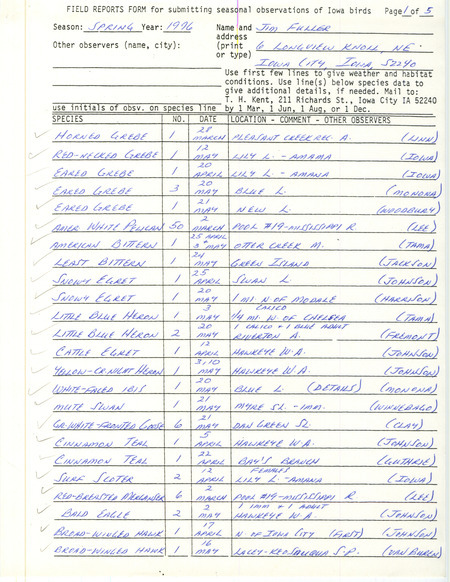 FIELD REPORTS FORM for submitting seasonal observations of Iowa birds Page 1 of 5
Season: SPRING Year: 1996 Name and JIM FULLER
address
Other observers (name, city): (print 6 LONGVIEW KNOLL, NE.
or type) IOWA CITY, IOWA, 52240
Use first few lines to give weather and habitat
conditions. Use line(s) below species data to
give additional details, if needed. Mail to:
T. H. Kent, 211 Richards St., Iowa City IA 52240
use initials of obsv. on species line by 1 Mar, 1 Jun, 1 Aug, or 1 Dec.
SPECIES NO. DATE LOCATION - COMMENT - OTHER OBSERVERS
HORNED GREBE 1 28 MARCH PLEASANT CREEK REC. A. (LINN)
RED-NECKED GREBE 1 12 MAY LILY L. - AMANA (IOWA)
EARED GREBE 1 20 APRIL LILY L. - AMANA (IOWA)
EARED GREBE 3 20 MAY BLUE L. (MONONA)
EARED GREBE 1 21 MAY NEW L. (WOODBURY)
AMER WHITE PELICAN 50 2 MARCH POOL #19-MISSISSIPPI R (LEE)
AMERICAN BITTERN 1 25 APRIL 3 MAY OTTER CREEK M. (TAMA)
LEAST BITTERN 1 24 MAY GREEN ISLAND (JACKSON)
SNOWY EGRET 1 25 APRIL SWAN L. (JOHNSON)
SNOWY EGRET 1 20 MAY 1 MI N OF MODALE (HARRISON)
LITTLE BLUE HERON 1 3 MAY CALICO 1/4 MI W. OF CHELSEA (TAMA)
LITTLE BLUE HERON 2 20 MAY 1 CALICO + 1 BLUE ADULT RIVERTON A. (FREMONT)
CATTLE EGRET 1 12 APRIL HAWKEYE W.A. (JOHNSON)
YELLOW-CR NIGHT HERON 1 3,10 MAY HAWKEYE W.A. (JOHNSON)
WHITE-FACED IBIS 1 20 MAY BLUE L. (DETAILS) (MONONA)
MUTE SWAN 1 21 MAY MYRE SL. - IMM. (WINNEBAGO)
GR-WHITE-FRONTED GOOSE 6 21 MAY DAN GREEN SL. (CLAY)
CINNAMON TEAL 1 5 APRIL HAWKEYE W.A. (JOHNSON)
CINNAMON TEAL 1 22 APRIL BAY'S BRANCH (GUTHRIE)
SURF SCOTER 2 12 APRIL FEMALES LILY L - AMANA (IOWA)
RED-BREASTED MERGANSER 6 2 MARCH POOL #19-MISSISSIPPI R (LEE)
BALD EAGLE 2 2 MAY 1 IMM + 1 ADULT HAWKEYE W.A. (JOHNSON)
BROAD-WINGED HAWK 1 17 APRIL N. OF IOWA CITY (FIRST) (JOHNSON)
BROAD-WINGED HAWK 1 16 MAY LACEY-KEOSAUQUA S.P. (VAN BUREN)